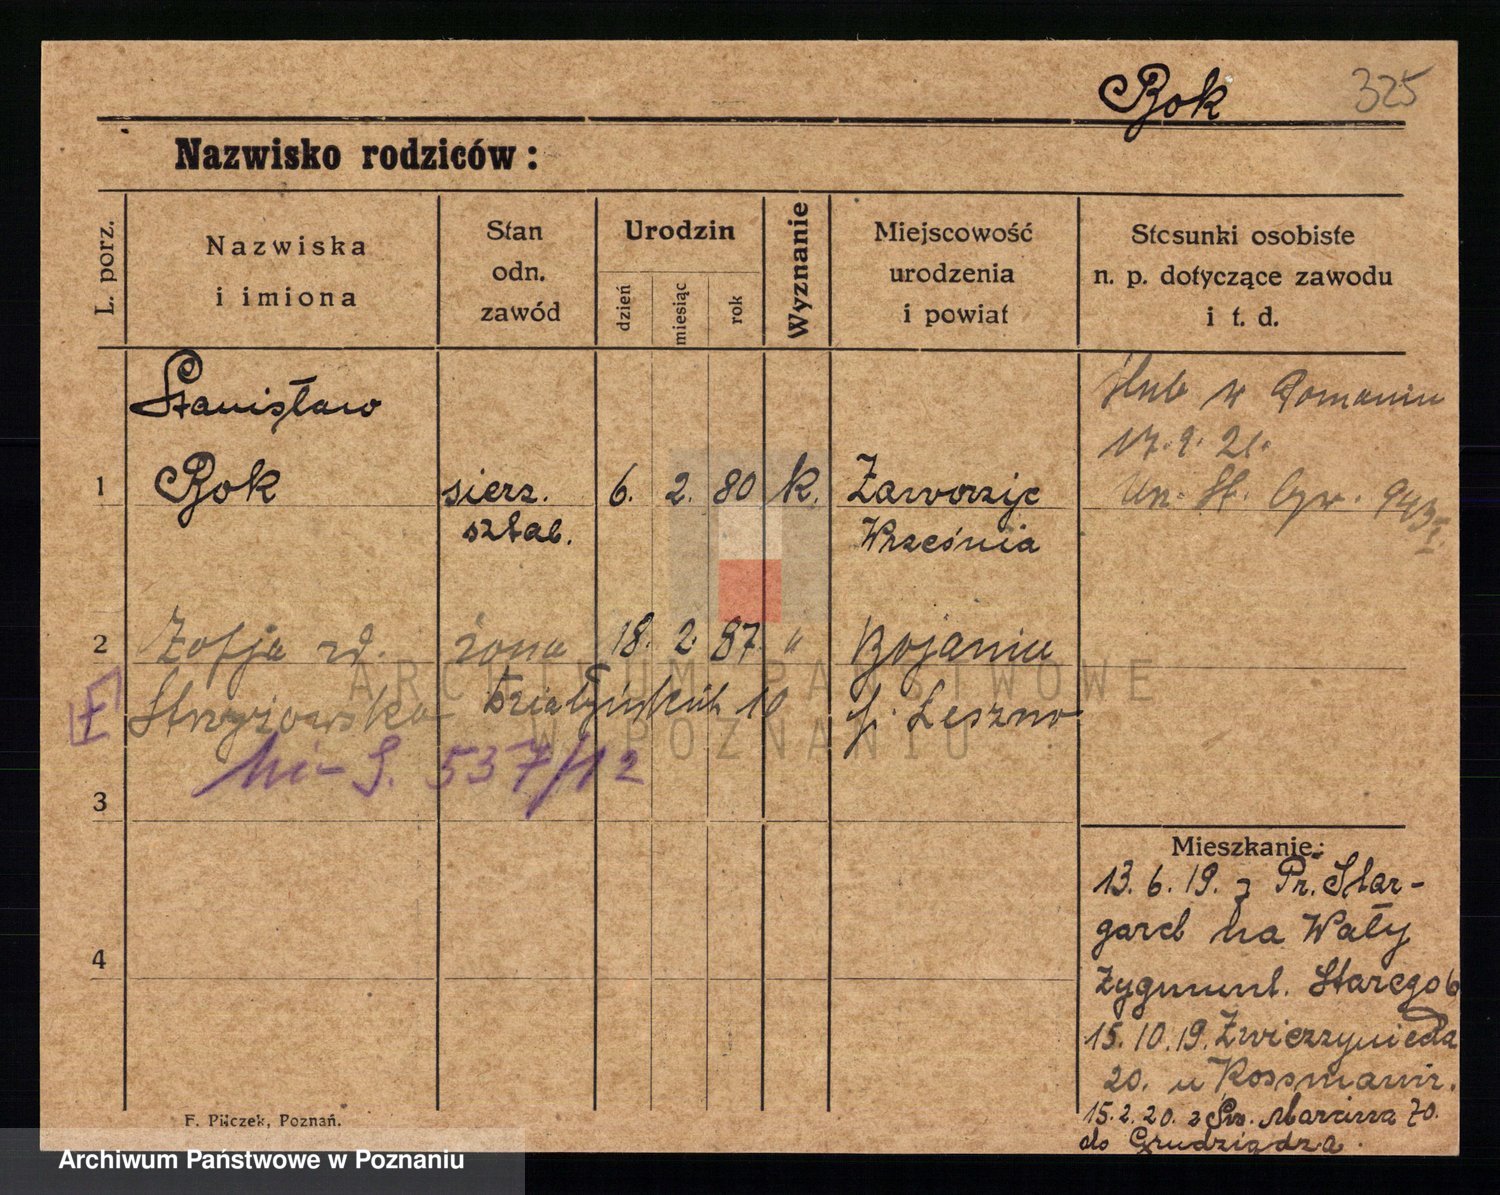 Bok 325
Nazwisko rodziców:
L. porz.
Nazwiska
i imiona
Stan
odn.
zawód
Urodzin
dzień
miesiąc
rok
Wyznanie
Miejscowość
urodzenia
i powiat
Stosunki osobiste
n. p. dotyczące zawodu
i t. d.
Stanisław
1 Bok sierz. 6. 2. 80 k.
sztab.
Września
Ślub w Poznaniu
21.
2 Zofja żona 18. 2. 87. "
Działyńskich 10
p. Leszno
537/12
3
4
Mieszkanie:
13. 6. 19. z Pr. Star-
gard na Wały
Zygmunt. Starego 6
15. 10. 19. Zwierzyniecka
20. u
15. 2. 20. z Św. Marcina 70.
do Grudziądza.
F. Pilczek, Poznań.
ARCHIWUM PAŃSTWOWE
W POZNANIU
Archiwum Państwowe w Poznaniu